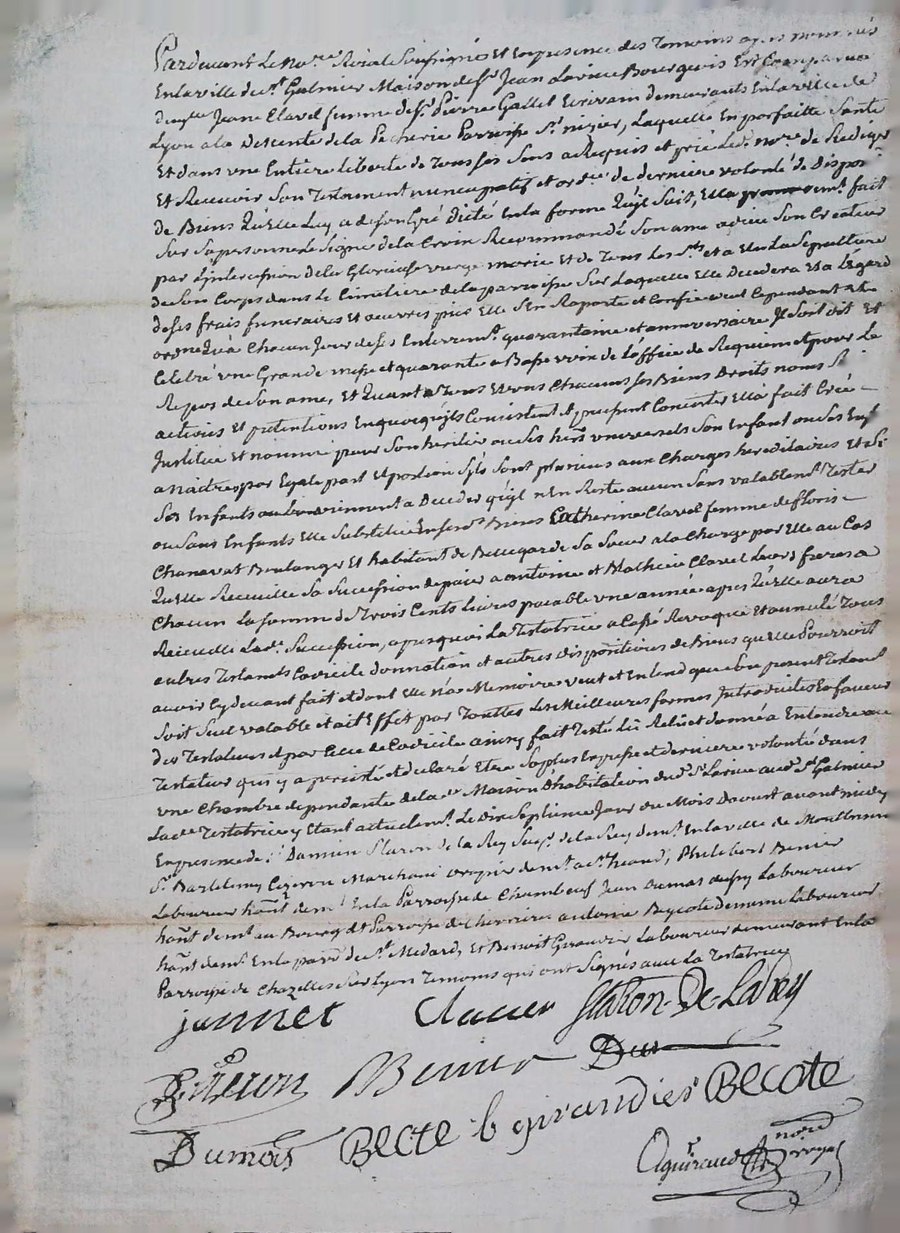 Pardevant Le no.re Roial Soussignés Et en presence des Temoins apres nommés
En la ville de st. Galmier Maison de sr. Jean Larive Bourgeois Est Comparue
Jeane Clavel femme de sr. Pierre Gallet Ecrivain demeurants En la ville de
Lyon a la Descente de la Pecherie Parroisse st. nizier, Laquelle En parfaitte Sante
Et dans une Entiere liberté de Tous ses Sens a Requis et prié Led. no.re de Rediger
Et Recevoir Son Testament nuncupatif et ord.re de derniere volonté de Dispo.on
de Biens qu'Elle Luy a de son Gré Dicté En la forme qui Suit, Elle fait
Sur Sa personne Le Signe de la Croix Recommandé Son ame a dieu Son Createur
par L'intercession de la Glorieuse vierge marie Et de Tous les Sts et a Elu La Sepulture
de Son Corps dans Le Cimetiere de la parroisse Sur Laquelle Elle Decedera Et a L'egard
de ses frais funeraires Et œuvres pies Elle S'En Raporte et Confie Cependant
ordne qu'à Chacun Jour de ses Enterremt. quarantaine et anniversaire Il Soit dit Et
Celebré une Grande messe et quarante a Basse voix de L'office de Requiem Et pour Le
Repos de Son ame, Et Quant a Tous Et uns Chacuns ses Biens Droits noms
actions Et pretentions En quoy qu'ils Consistent Et puissent Consister Ella fait Créé
Institué Et nommé pour Son heritier ou Ses hers. universels Son Enfant ou Ses Enf.
a Naitre par Egale part Et portion S'ils Sont plusieurs aux Charges hereditaires Et Si
Ses Enfants venoient a Deceder qu'il n'En Reste aucun Sans valablemt. Tester
ou Sans Enfants Elle Substitue En Biens Catherine Clavel femme de floris
Chanavat Boulanger Et habitant de Bellegarde Sa Soeur a la Charge par Elle au Cas
Qu'Elle Recueille Sa Succession de paier a antoine et Mathieu Clavel Leurs freres a
Chacun La Somme de Trois Cents Livres paiable une année apres qu'Elle aura
Recueilli Lade. Succession, apres quoi La Testatrice a Cassé Revoqué Et annulé Tous
autres Testamts. Codicile donnation et autres dispositions de Biens qu'elle Pourroit
avoir Cy devant fait et dont Elle n'a Memoire veut et Entend que Le present Testamt.
Soit Seul valable et ait Effet par Touttes Les Meilleures formes Introduites En faveur
des Testateurs et par Celle de Codicile ainsy fait Testé Lû Relû et donné a Entendre au
Testateur qui y a persisté et declaré Etre Sa plus Expresse et derniere volonté dans
une Chambre dependante de la de. Maison d'habitation du d. Sr. Larive aud. St. Galmier
Lade. Testatrice y Etant actuelemt. Le dix Septieme Jour du Mois Daoust avant midy
En presence de Sr. Damien Staron de la Rey de la Rey demt. En la ville de Montbrison
Sr. Bartelemy Marchand demt. Philibert Benier
Laboureur hant demt. En la Parroisse de Chambeuf Jean dumas aussy Laboureur
hant demt. au Bourg et Parroisse de Chevrieres antoine Beycote de meme Laboureur
hant demt. En la parsse. de St. Medard, Et Benoit Girandier Laboureur demeurant En la
Parroisse de Chazelles Sur Lyon Temoins qui ont Signés avec La Testatrice
jannet Clavel Staron De Larey
Benier
Dumas BECTE b girandier BECOTE
Aguiraud nore.
royal